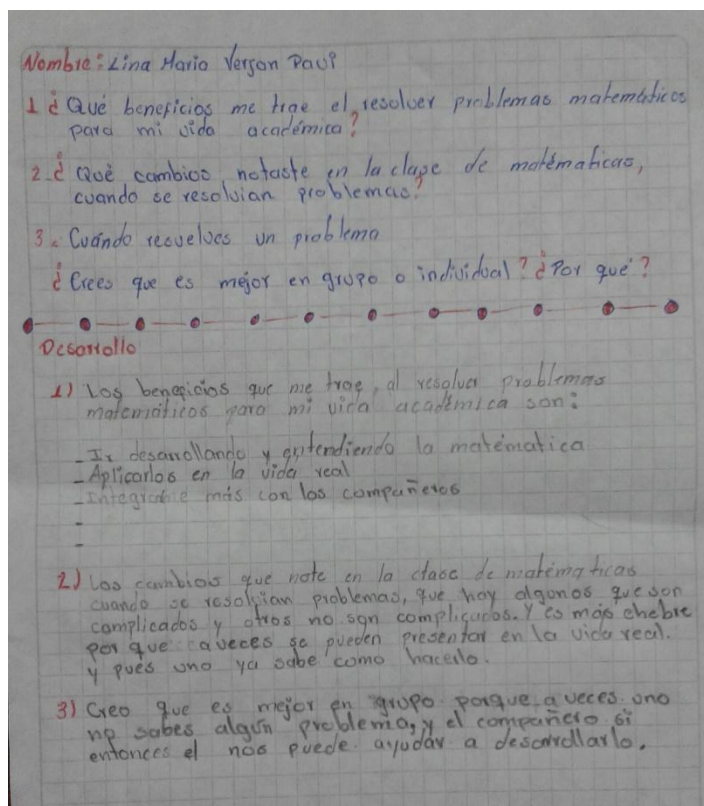 Nombre: Lina Maria Verson Pavi
1 ¿Qué beneficios me trae el resolver problemas matemáticos
para mi vida académica?
2. ¿Qué cambios notaste en la clase de matématicas,
cuando se resolvian problemas?
3. Cuándo resuelves un problema
¿Crees que es mejor en grupo o individual? ¿Por qué?
Desarrollo
1) Los beneficios que me trae, al resolver problemas
matemáticos para mi vida académica son:
- Ir desarrollando y entendiendo la matématica
- Aplicarlos en la vida real
- Integrarme más con los compañeros
-
-
2) Los cambios que note en la clase de matématicas
cuando se resolvian problemas, que hay algunos que son
complicados y otros no son complicados. Y es más chebre
por que aveces se pueden presentar en la vida real.
y pués uno ya sabe como hacerlo.
3) Creo que es mejor en grupo porque a veces uno
no sabes algún problema, y el compañero si
entonces el nos puede ayudar a desarrollarlo.